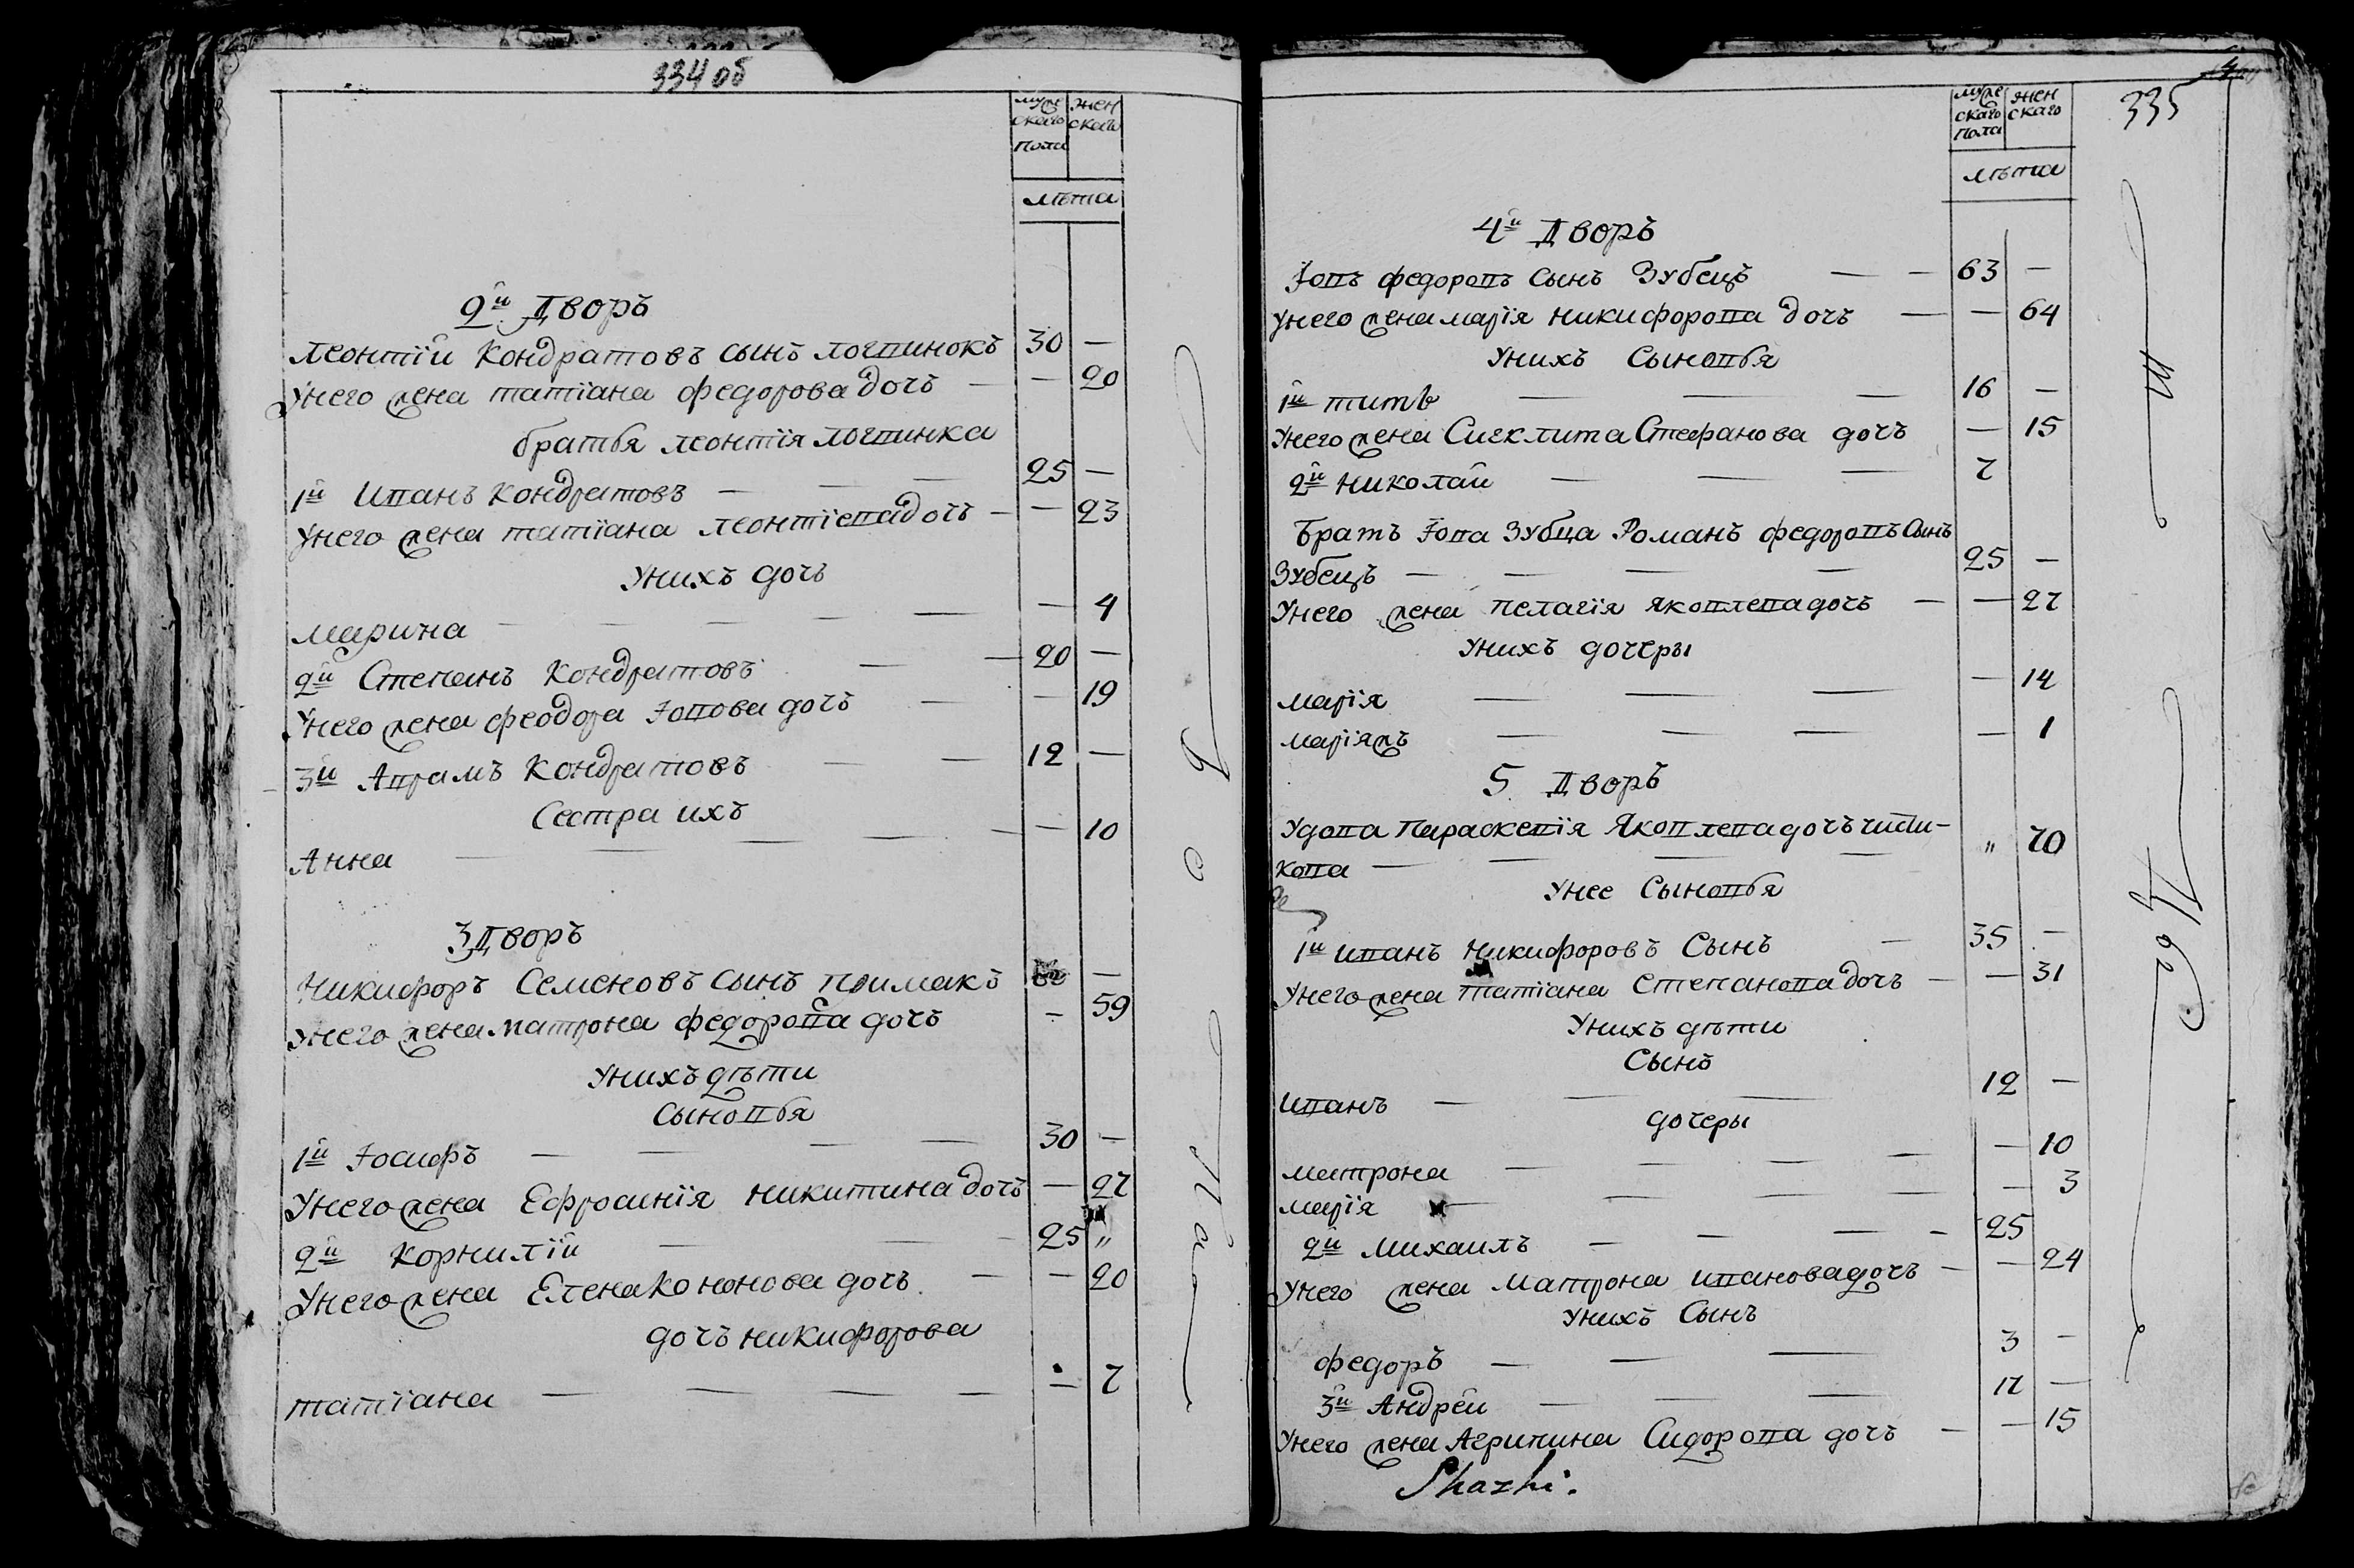 334 об
муже
ского
пола
жен
ского
лѣта
2й Дворъ
Леонтїй Кондратовъ сынъ Логвинокъ 30 —
унего жена татїана федорова дочь — — 20
братья леонтїя логвинка
1й Иванъ Кондратовъ — — — 25 —
унего жена татїана леонтїева дочь — — 23
унихъ дочь
марина — — — — — — 4
2й Степанъ Кондратовъ — — 20 —
унего жена феодора Іовова дочь — — 19
3й Аврамъ Кондратовъ — — 12 —
Сестра ихъ
Анна — — — — — — 10
3 Дворъ
Никифоръ Семеновъ сынъ примакъ —
унего жена матрона федорова дочь — 59
унихъ дѣти
Сыновья
1й Іосифъ — — — — 30 —
унего жена Ефросинїя никитина дочь — 27
2й Корнилїй — — — 25 „
унего жена Елена Кононова дочь — — 20
дочь никифорова
татїана — — — — — 7
335
муже
скаго
пола
жен
скаго
лѣта
4й Дворъ
Іовъ федоровъ сынъ Зубецъ — — 63 —
унего жена марїя никифорова дочь — — 64
унихъ Сыновья
1й титъ — — — 16 —
унего жена Сигклита Стефанова дочь — 15
2й николай — — — 7
Братъ Іова Зубца Романъ федоровъ сынъ
Зубецъ — — — — 25 —
унего жена пелагїя яковлева дочь — — 27
унихъ дочеры
марїя — — — — 14
марїяжъ — — — — 1
5 Дворъ
Удова Параскевїя Яковлева дочь чижи-
кова — — — — „ 70
унее Сыновья
1й иванъ никифоровъ Сынъ — 35 —
унего жена татїана Степанова дочь — — 31
унихъ дѣти
Сынъ
иванъ — — — 12 —
дочеры
матрона — — — — — 10
марїя — — — — — 3
2й Михаилъ — — — — 25
унего жена матрона иванова дочь — — 24
унихъ Сынъ
федоръ — — — 3 —
3й Андрей — — — 17 —
унего жена Агрипина Сидорова дочь — — 15